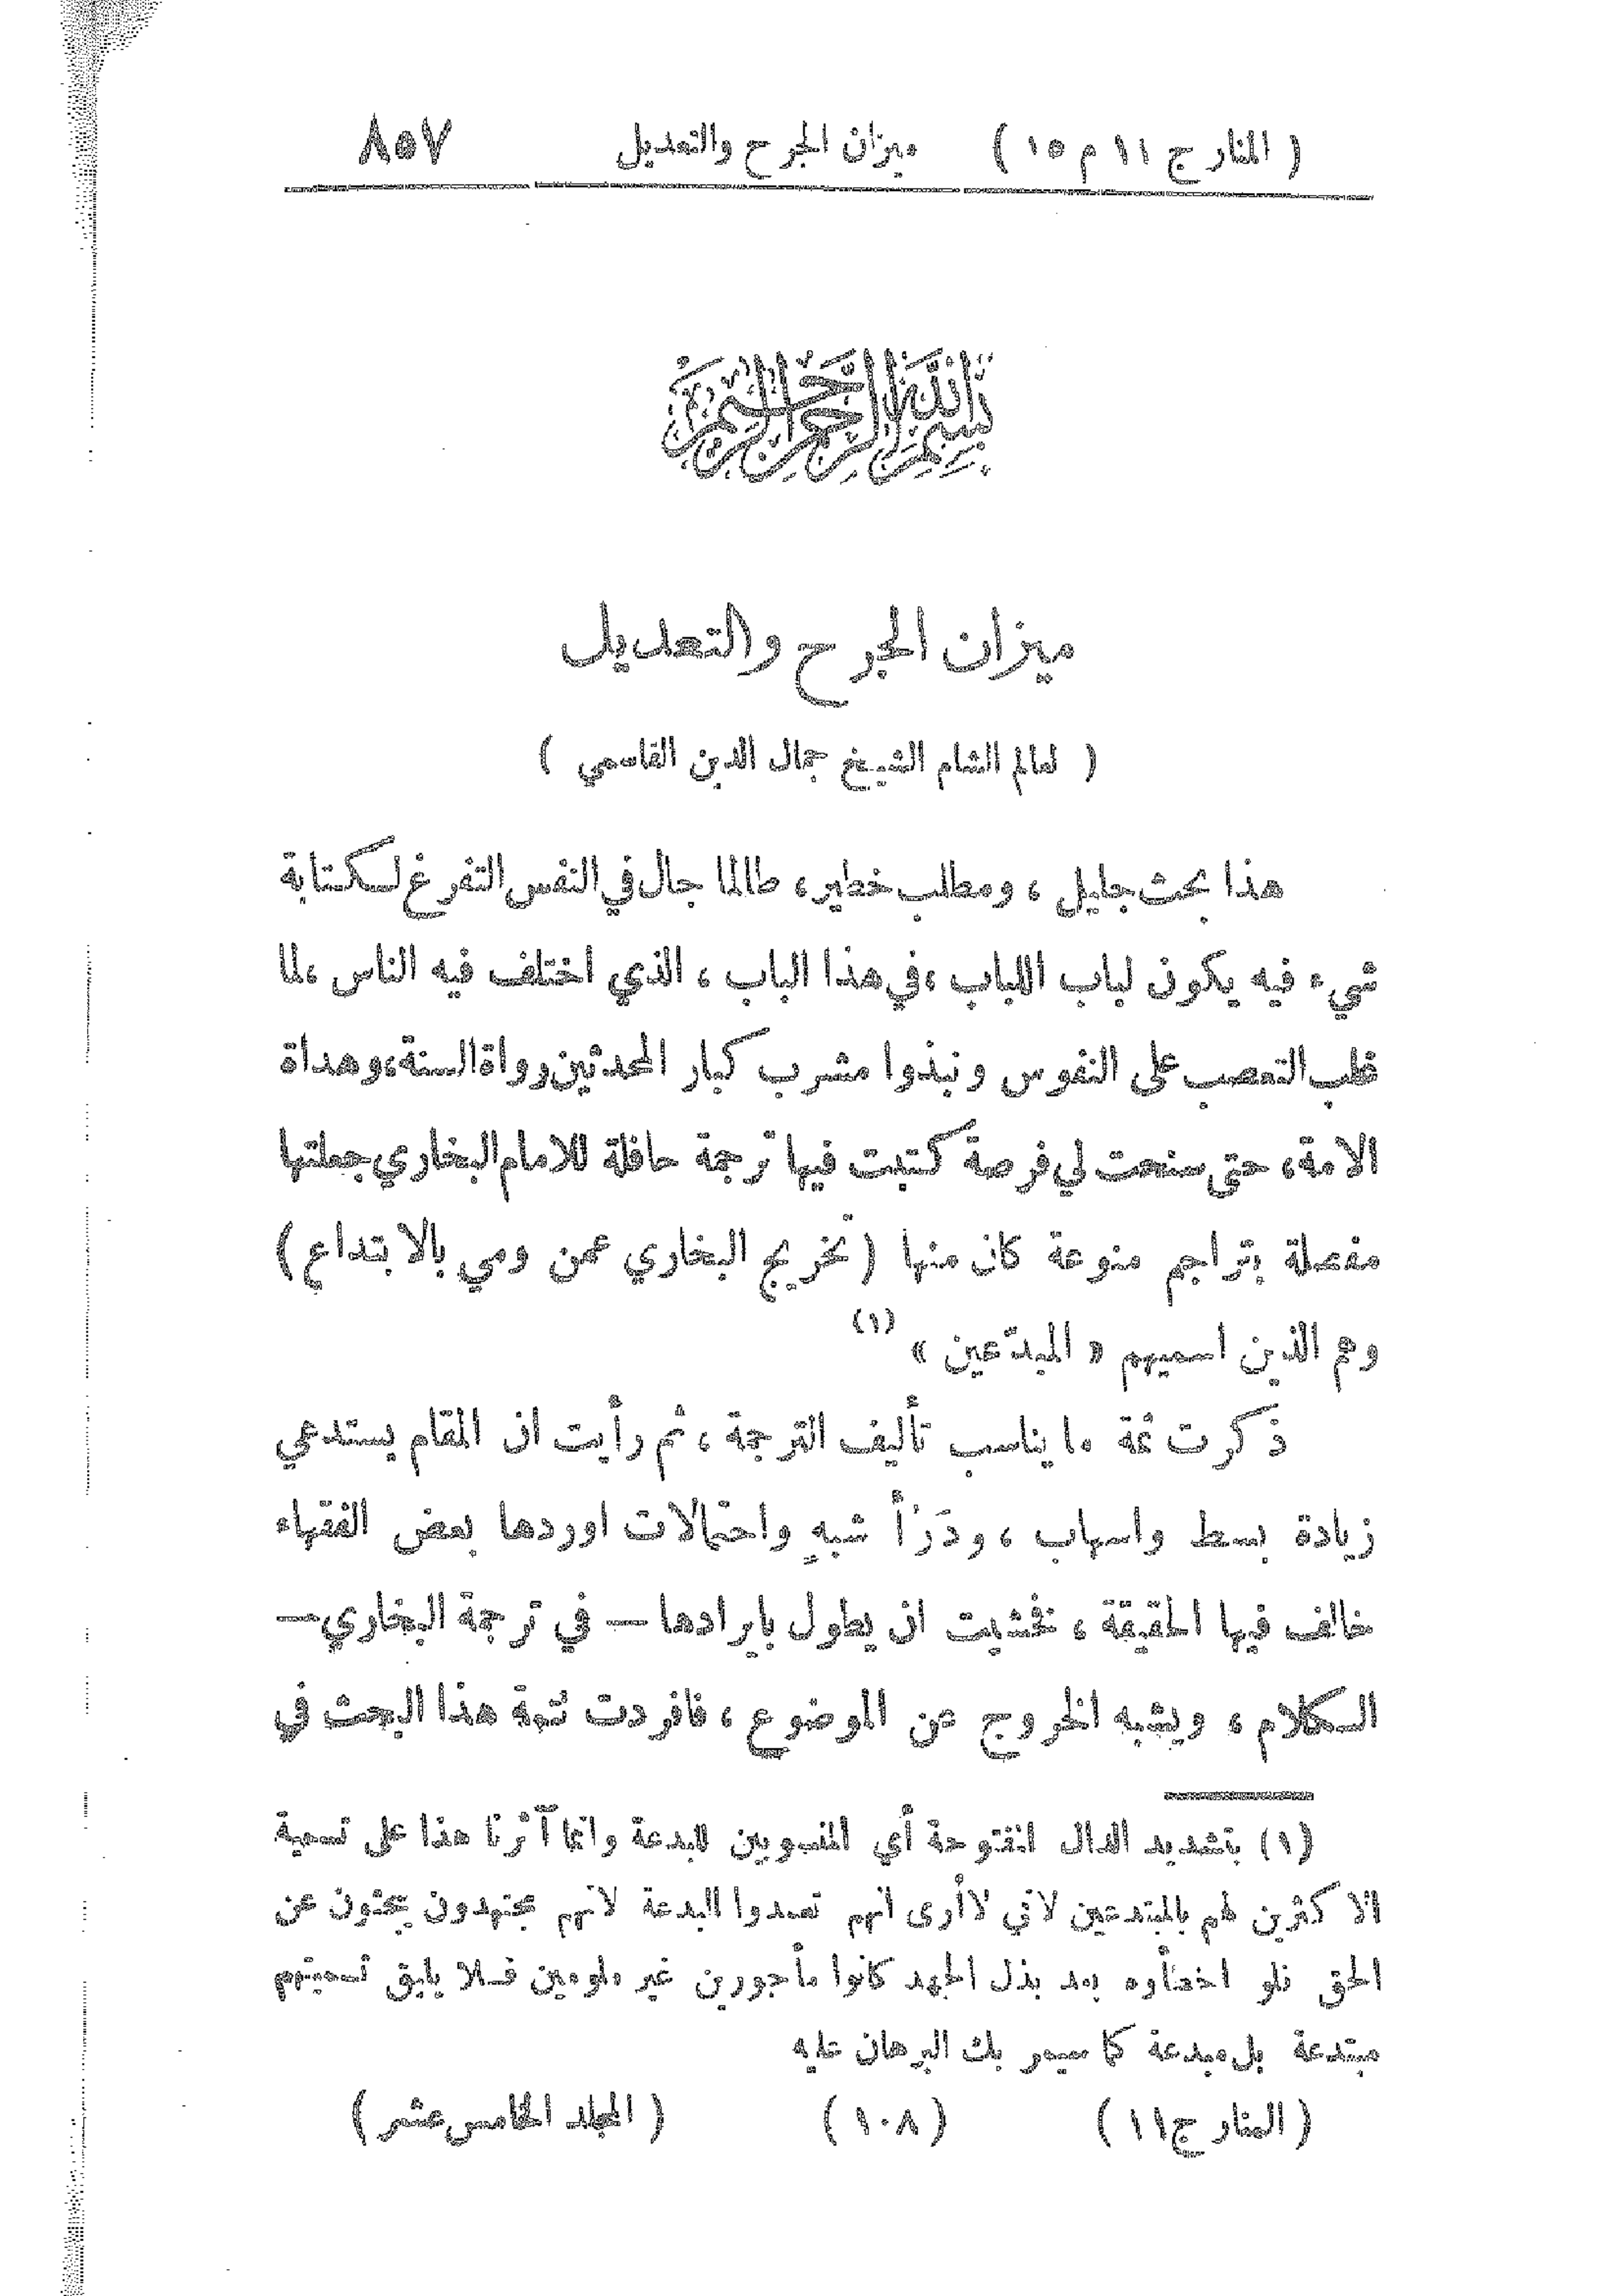 ( المنار ج ١١ م ١٥ ) ميزان الجرح والتعديل ٨٥٧
بسم الله الرحمن الرحيم
ميزان الجرح والتعديل
( لعالم الشام الشيخ جمال الدين القاسمي )
هذا بحث جليل ، ومطلب خطير، طالما جال في النفس التفرغ لكتابة
شيء فيه يكون لباب اللباب ، في هذا الباب ، الذي اختلف فيه الناس ، لما
غلب التعصب على النفوس ونبذوا مشرب كبار المحدثين رواة السنة، وهداة
الامة، حتى سنحت لي فرصة كتبت فيها ترجمة حافلة للامام البخاري جعلتها
مفصلة بتراجم منوعة كان منها ( تخريج البخاري عمن رمي بالابتداع )
وهم الذين اسميهم « المبدّعين » (١)
ذكرت ثمة ما يناسب تأليف الترجمة ، ثم رأيت ان المقام يستدعي
زيادة بسط واسهاب ، ودَرْأ شبهٍ واحتمالات اوردها بعض الفقهاء
خالف فيها الحقيقة ، فخشيت ان يطول بايرادها — في ترجمة البخاري —
الكلام ، ويشبه الخروج عن الموضوع ، فافردت تتمة هذا البحث في
(١) بتشديد الدال المفتوحة أي المنسوبين للبدعة وانما آثرنا هذا على تسمية
الاكثرين لهم بالمبتدعين لاني لا أرى انهم تعمدوا البدعة لانهم مجتهدون يبحثون عن
الحق فلو اخطأوه بعد بذل الجهد كانوا مأجورين غير ملومين فلا يليق تسميتهم
مبتدعة بل مبدعة كما سيمر بك البرهان عليه
( المنار ج ١١ ) ( ١٠٨ ) ( المجلد الخامس عشر )